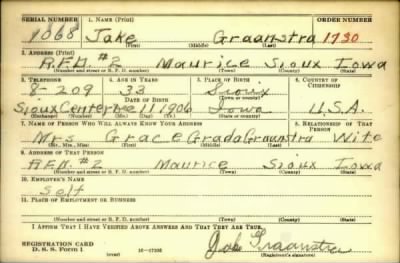 SERIAL NUMBER 1. NAME (Print) ORDER NUMBER
1068 Jake Graanstra 1730
(First) (Middle) (Last)
2. ADDRESS (Print)
R.F.D. #2 Maurice Sioux Iowa
(Number and street or R. F. D. number) (Town) (County) (State)
3. TELEPHONE 4. AGE IN YEARS 5. PLACE OF BIRTH 6. COUNTRY OF CITIZENSHIP
8-209 33 Sioux
DATE OF BIRTH (Town or county)
Sioux Center 11 1906 Iowa U.S.A.
(Exchange) (Number) (Mo.) (Day) (Yr.) (State or country)
7. NAME OF PERSON WHO WILL ALWAYS KNOW YOUR ADDRESS 8. RELATIONSHIP OF THAT PERSON
Mrs Grace Grada Graanstra Wife
(Mr., Mrs., Miss) (First) (Middle) (Last)
9. ADDRESS OF THAT PERSON
R.F.D. #2 Maurice Sioux Iowa
(Number and street or R. F. D. number) (Town) (County) (State)
10. EMPLOYER'S NAME
Self
11. PLACE OF EMPLOYMENT OR BUSINESS
(Number and street or R. F. D. number) (Town) (County) (State)
I AFFIRM THAT I HAVE VERIFIED ABOVE ANSWERS AND THAT THEY ARE TRUE.
REGISTRATION CARD
D. S. S. Form 1 (over) Jake Graanstra
(Registrant's signature)